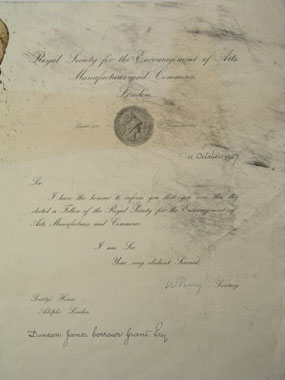 Royal Society for the Encouragement of Arts
Manufactures and Commerce
London
11 October 19
Sir,
I have the honour to inform you that you were this day
elected a Fellow of the Royal Society for the Encouragement of
Arts, Manufactures and Commerce.
I am, Sir,
Your very obedient Servant,
Secretary
Society's House
Adelphi, London
Duncan James Corrowr Grant Esq